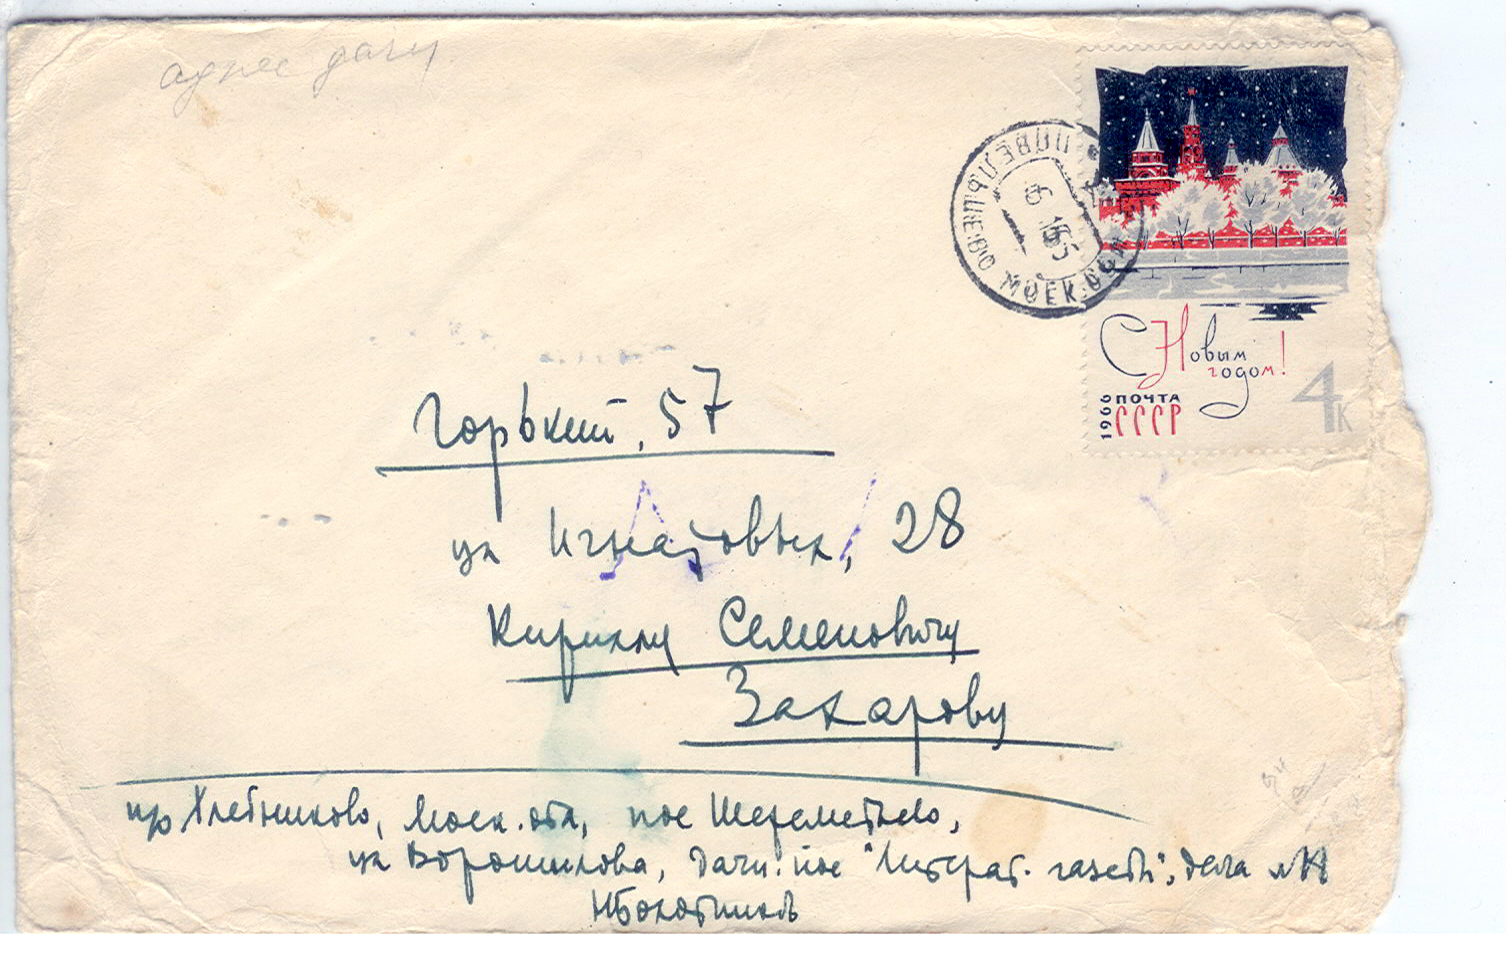 адрес дачи
Шереметьево
Моск. обл
С Новым
годом!
1966
ПОЧТА
СССР
4к
Горький, 57
ул Игнатовых, 28
Кириллу Семеновичу
Захарову
п/о Хлебниково, Моск. обл, пос Шереметьево,
ул Ворошилова, Дачн. пос "Литерат. газеты", дача